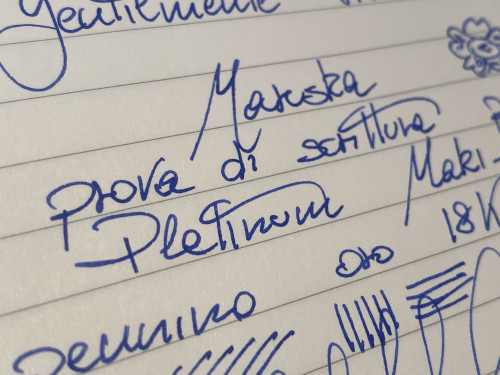 Gentilmente
Maruska
prova di scrittura
Platinum Maki
pennino oro 18K